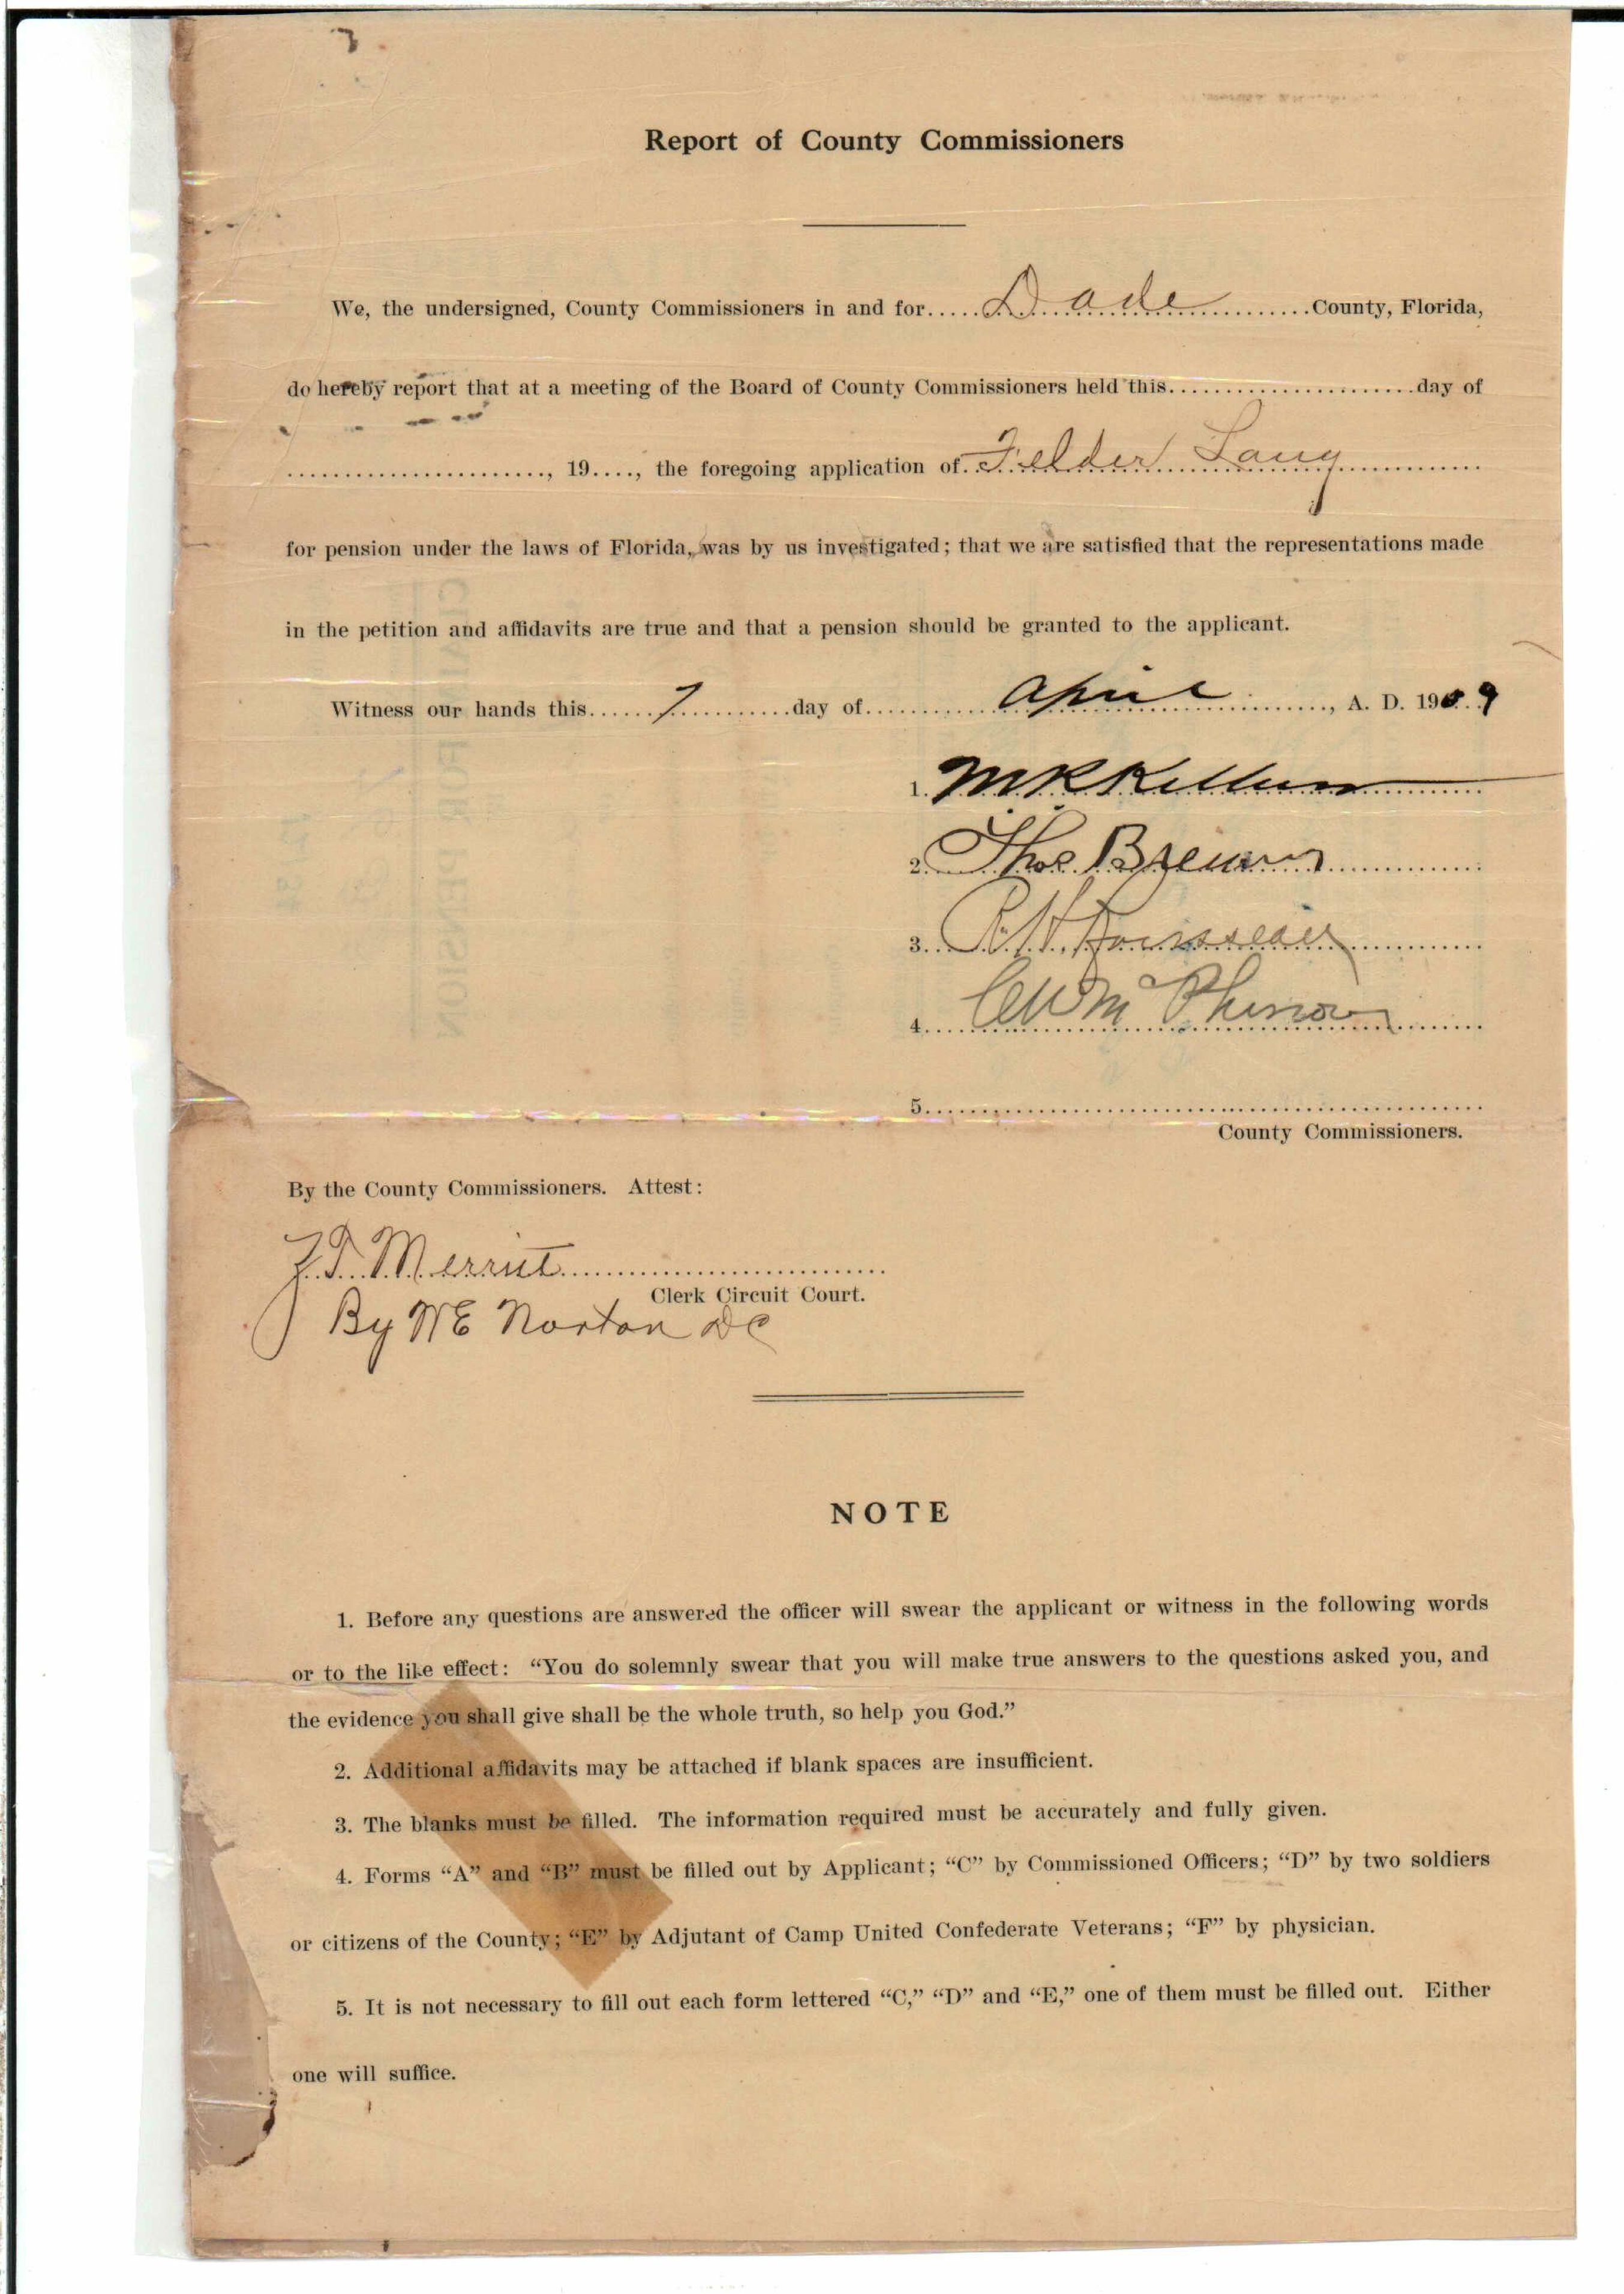 Report of County Commissioners
We, the undersigned, County Commissioners in and for.....Dade..........County, Florida,
do hereby report that at a meeting of the Board of County Commissioners held this......................day of
........................, 19...., the foregoing application of Fielder Lang
for pension under the laws of Florida, was by us investigated; that we are satisfied that the representations made
in the petition and affidavits are true and that a pension should be granted to the applicant.
Witness our hands this......7..........day of...........April.........., A. D. 1909
1. M R Kellum
2. Thos Brewer
3. R H Rousseau
4. C W Mc Pherson
5.
County Commissioners.
By the County Commissioners. Attest:
Z. T. Merritt
Clerk Circuit Court.
By W E Norton DC
NOTE
1. Before any questions are answered the officer will swear the applicant or witness in the following words
or to the like effect: “You do solemnly swear that you will make true answers to the questions asked you, and
the evidence you shall give shall be the whole truth, so help you God.”
2. Additional affidavits may be attached if blank spaces are insufficient.
3. The blanks must be filled. The information required must be accurately and fully given.
4. Forms “A” and “B” must be filled out by Applicant; “C” by Commissioned Officers; “D” by two soldiers
or citizens of the County; “E” by Adjutant of Camp United Confederate Veterans; “F” by physician.
5. It is not necessary to fill out each form lettered “C,” “D” and “E,” one of them must be filled out. Either
one will suffice.